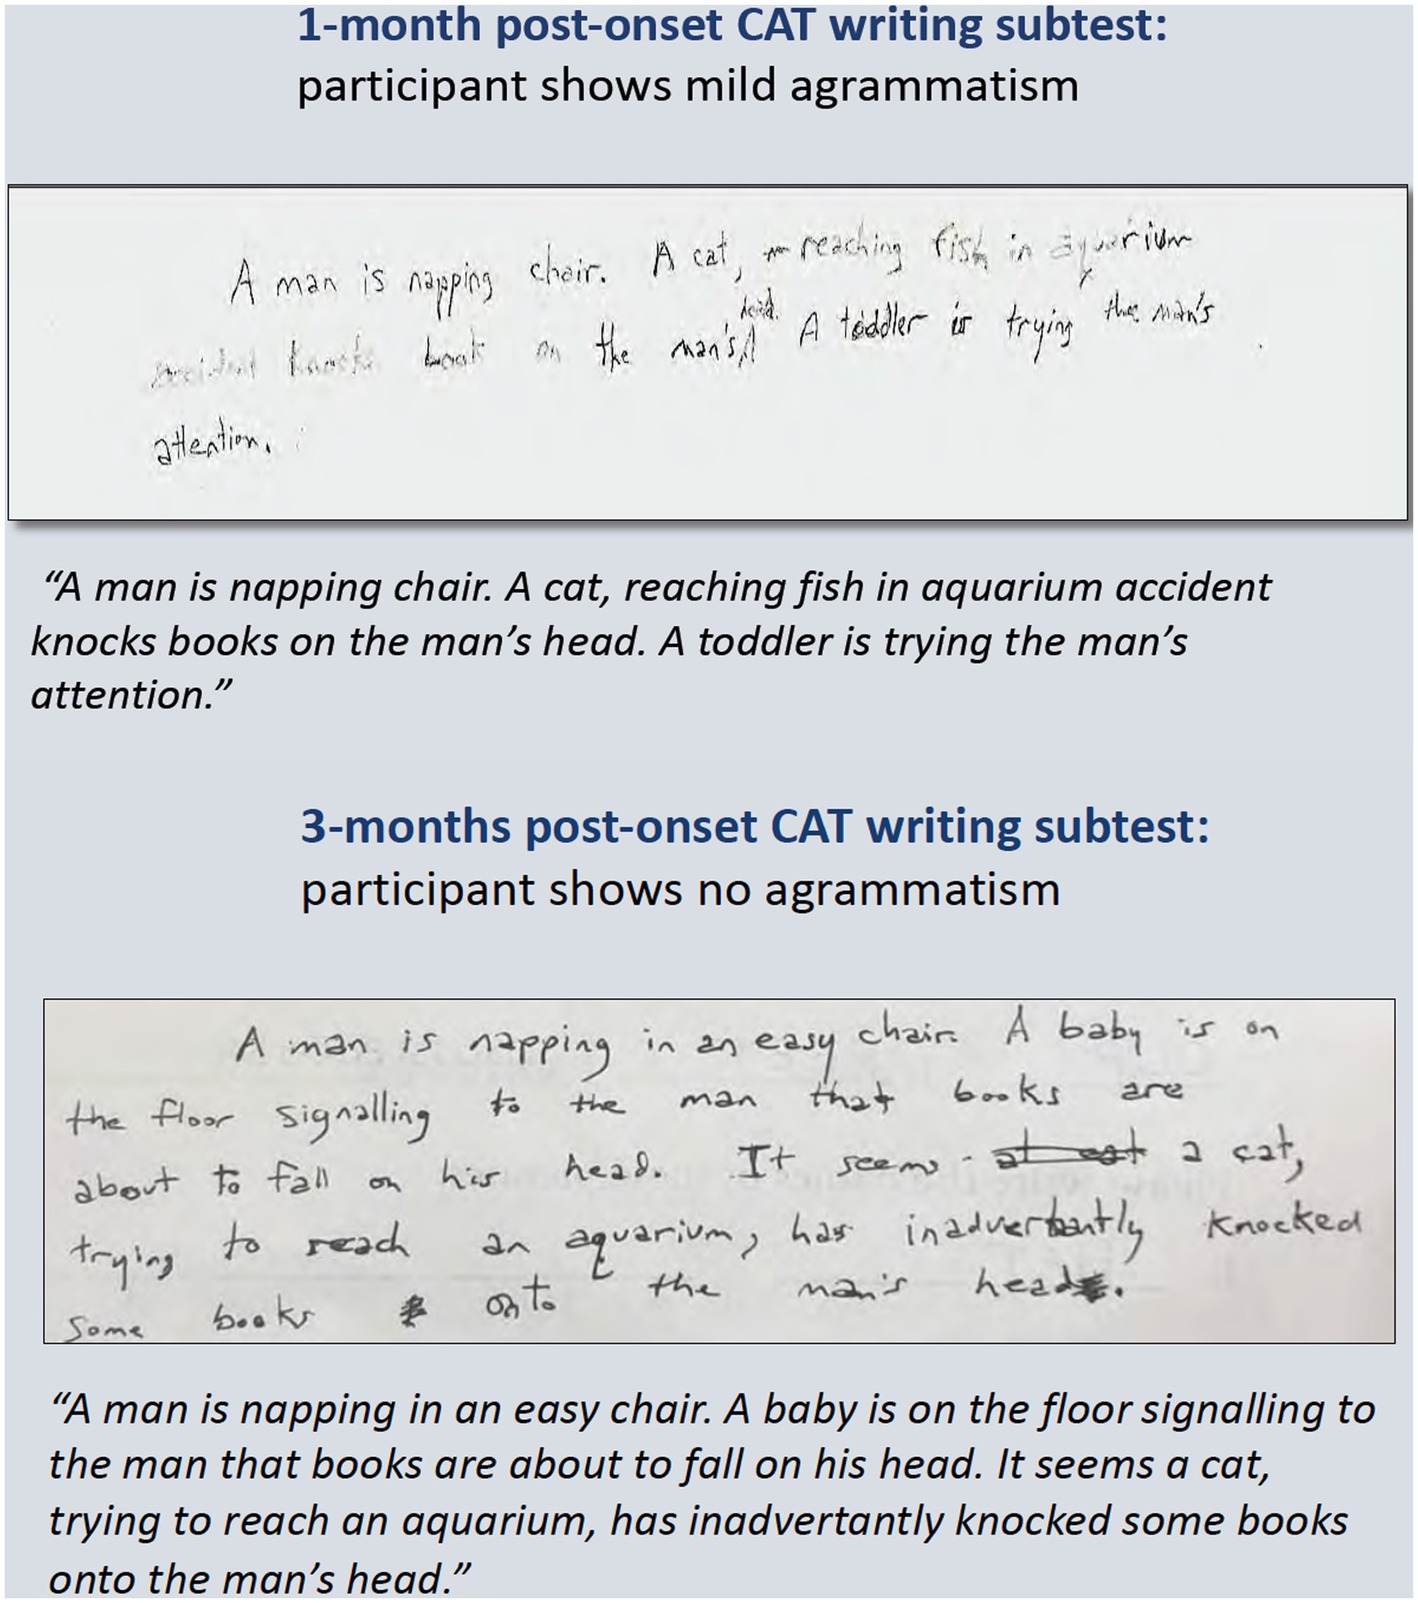 1-month post-onset CAT writing subtest:
participant shows mild agrammatism
A man is napping chair. A cat, reaching fish in aquarium
accident knocks book on the man's head. A toddler is trying the man's
attention.
“A man is napping chair. A cat, reaching fish in aquarium accident
knocks books on the man’s head. A toddler is trying the man’s
attention.”
3-months post-onset CAT writing subtest:
participant shows no agrammatism
A man is napping in an easy chair. A baby is on
the floor signalling to the man that books are
about to fall on his head. It seems a cat,
trying to reach an aquarium, has inadvertantly knocked
some books onto the man's head.
“A man is napping in an easy chair. A baby is on the floor signalling to
the man that books are about to fall on his head. It seems a cat,
trying to reach an aquarium, has inadvertantly knocked some books
onto the man’s head.”